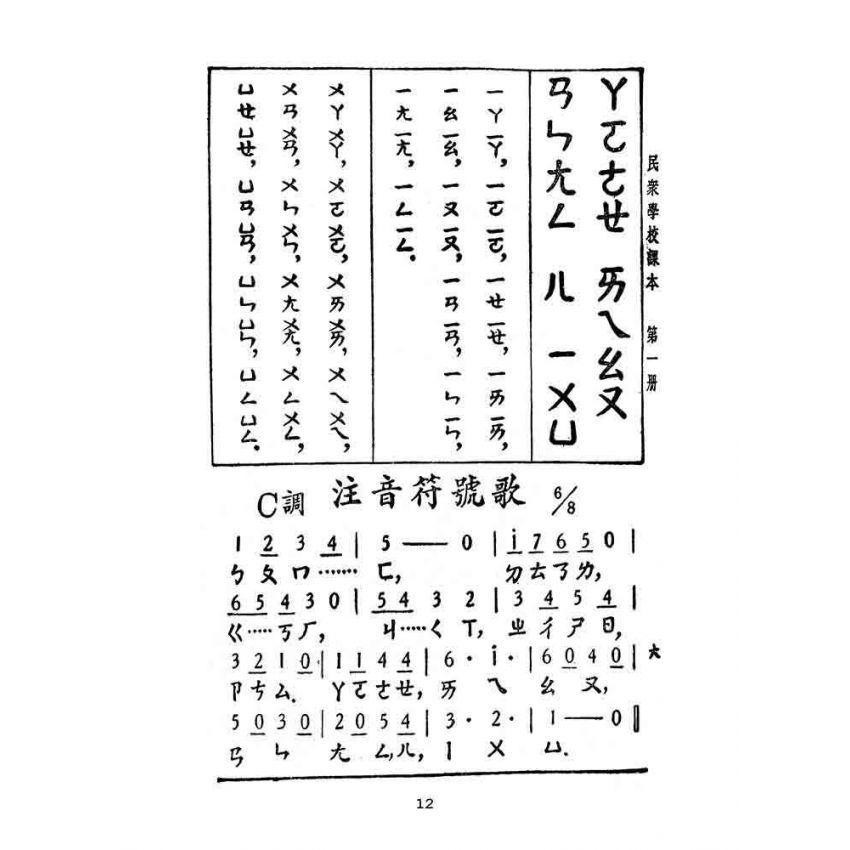 民衆學校課本 第一册
ㄚㄛㄜㄝ ㄞㄟㄠㄡ
ㄢㄣㄤㄥ ㄦ ㄧㄨㄩ
ㄧㄚㄧㄚ，ㄧㄛㄧㄛ，ㄧㄝㄧㄝ，ㄧㄞㄧㄞ，
ㄧㄠㄧㄠ，ㄧㄡㄧㄡ，ㄧㄢㄧㄢ，ㄧㄣㄧㄣ，
ㄧㄤㄧㄤ，ㄧㄥㄧㄥ.
ㄨㄚㄨㄚ，ㄨㄛㄨㄛ，ㄨㄞㄨㄞ，ㄨㄟㄨㄟ，
ㄨㄢㄨㄢ，ㄨㄣㄨㄣ，ㄨㄤㄨㄤ，ㄨㄥㄨㄥ，
ㄩㄝㄩㄝ，ㄩㄢㄩㄢ，ㄩㄣㄩㄣ，ㄩㄥㄩㄥ.
C調 注音符號歌 6/8
1 2 3 4 | 5 — 0 | i 7 6 5 0 |
ㄅ ㄆ ㄇ ······· ㄈ, ㄉㄊㄋㄌ,
6 5 4 3 0 | 5 4 3 2 | 3 4 5 4 |
ㄍ ····· ㄎㄏ, ㄐ ····· ㄑ ㄒ, ㄓ ㄔ ㄕ ㄖ,
3 2 1 0 | 1 1 4 4 | 6 · i · | 6 0 4 0 | 六
ㄗ ㄘ ㄙ. ㄚㄛㄜㄝ, ㄞ ㄟ ㄠ ㄡ,
5 0 3 0 | 2 0 5 4 | 3 · 2 · | 1 — 0 ‖
ㄢ ㄣ ㄤ ㄥ,ㄦ, ㄧ ㄨ ㄩ.
12